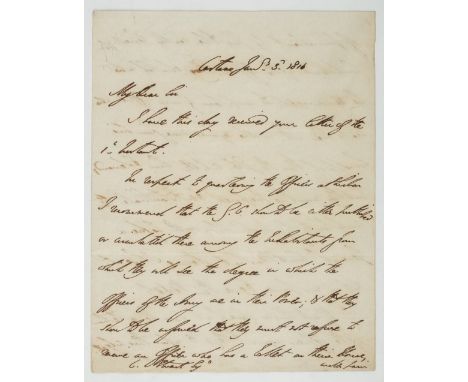 Cartaxo Jany. 3d. 1811
My dear Sir
I have this day received your letter of the
1st Instant.
In respect to quartering the Officers at Lisbon
I recommend that the G. O should be either published
or circulated there among the Inhabitants from
which they will see the degree in which the
Officers of the Army are in their Power; & that they
should be informed that they must not refuse to
receive an Officer who has a Billet on their House,
C. Stuart Esqr with fair